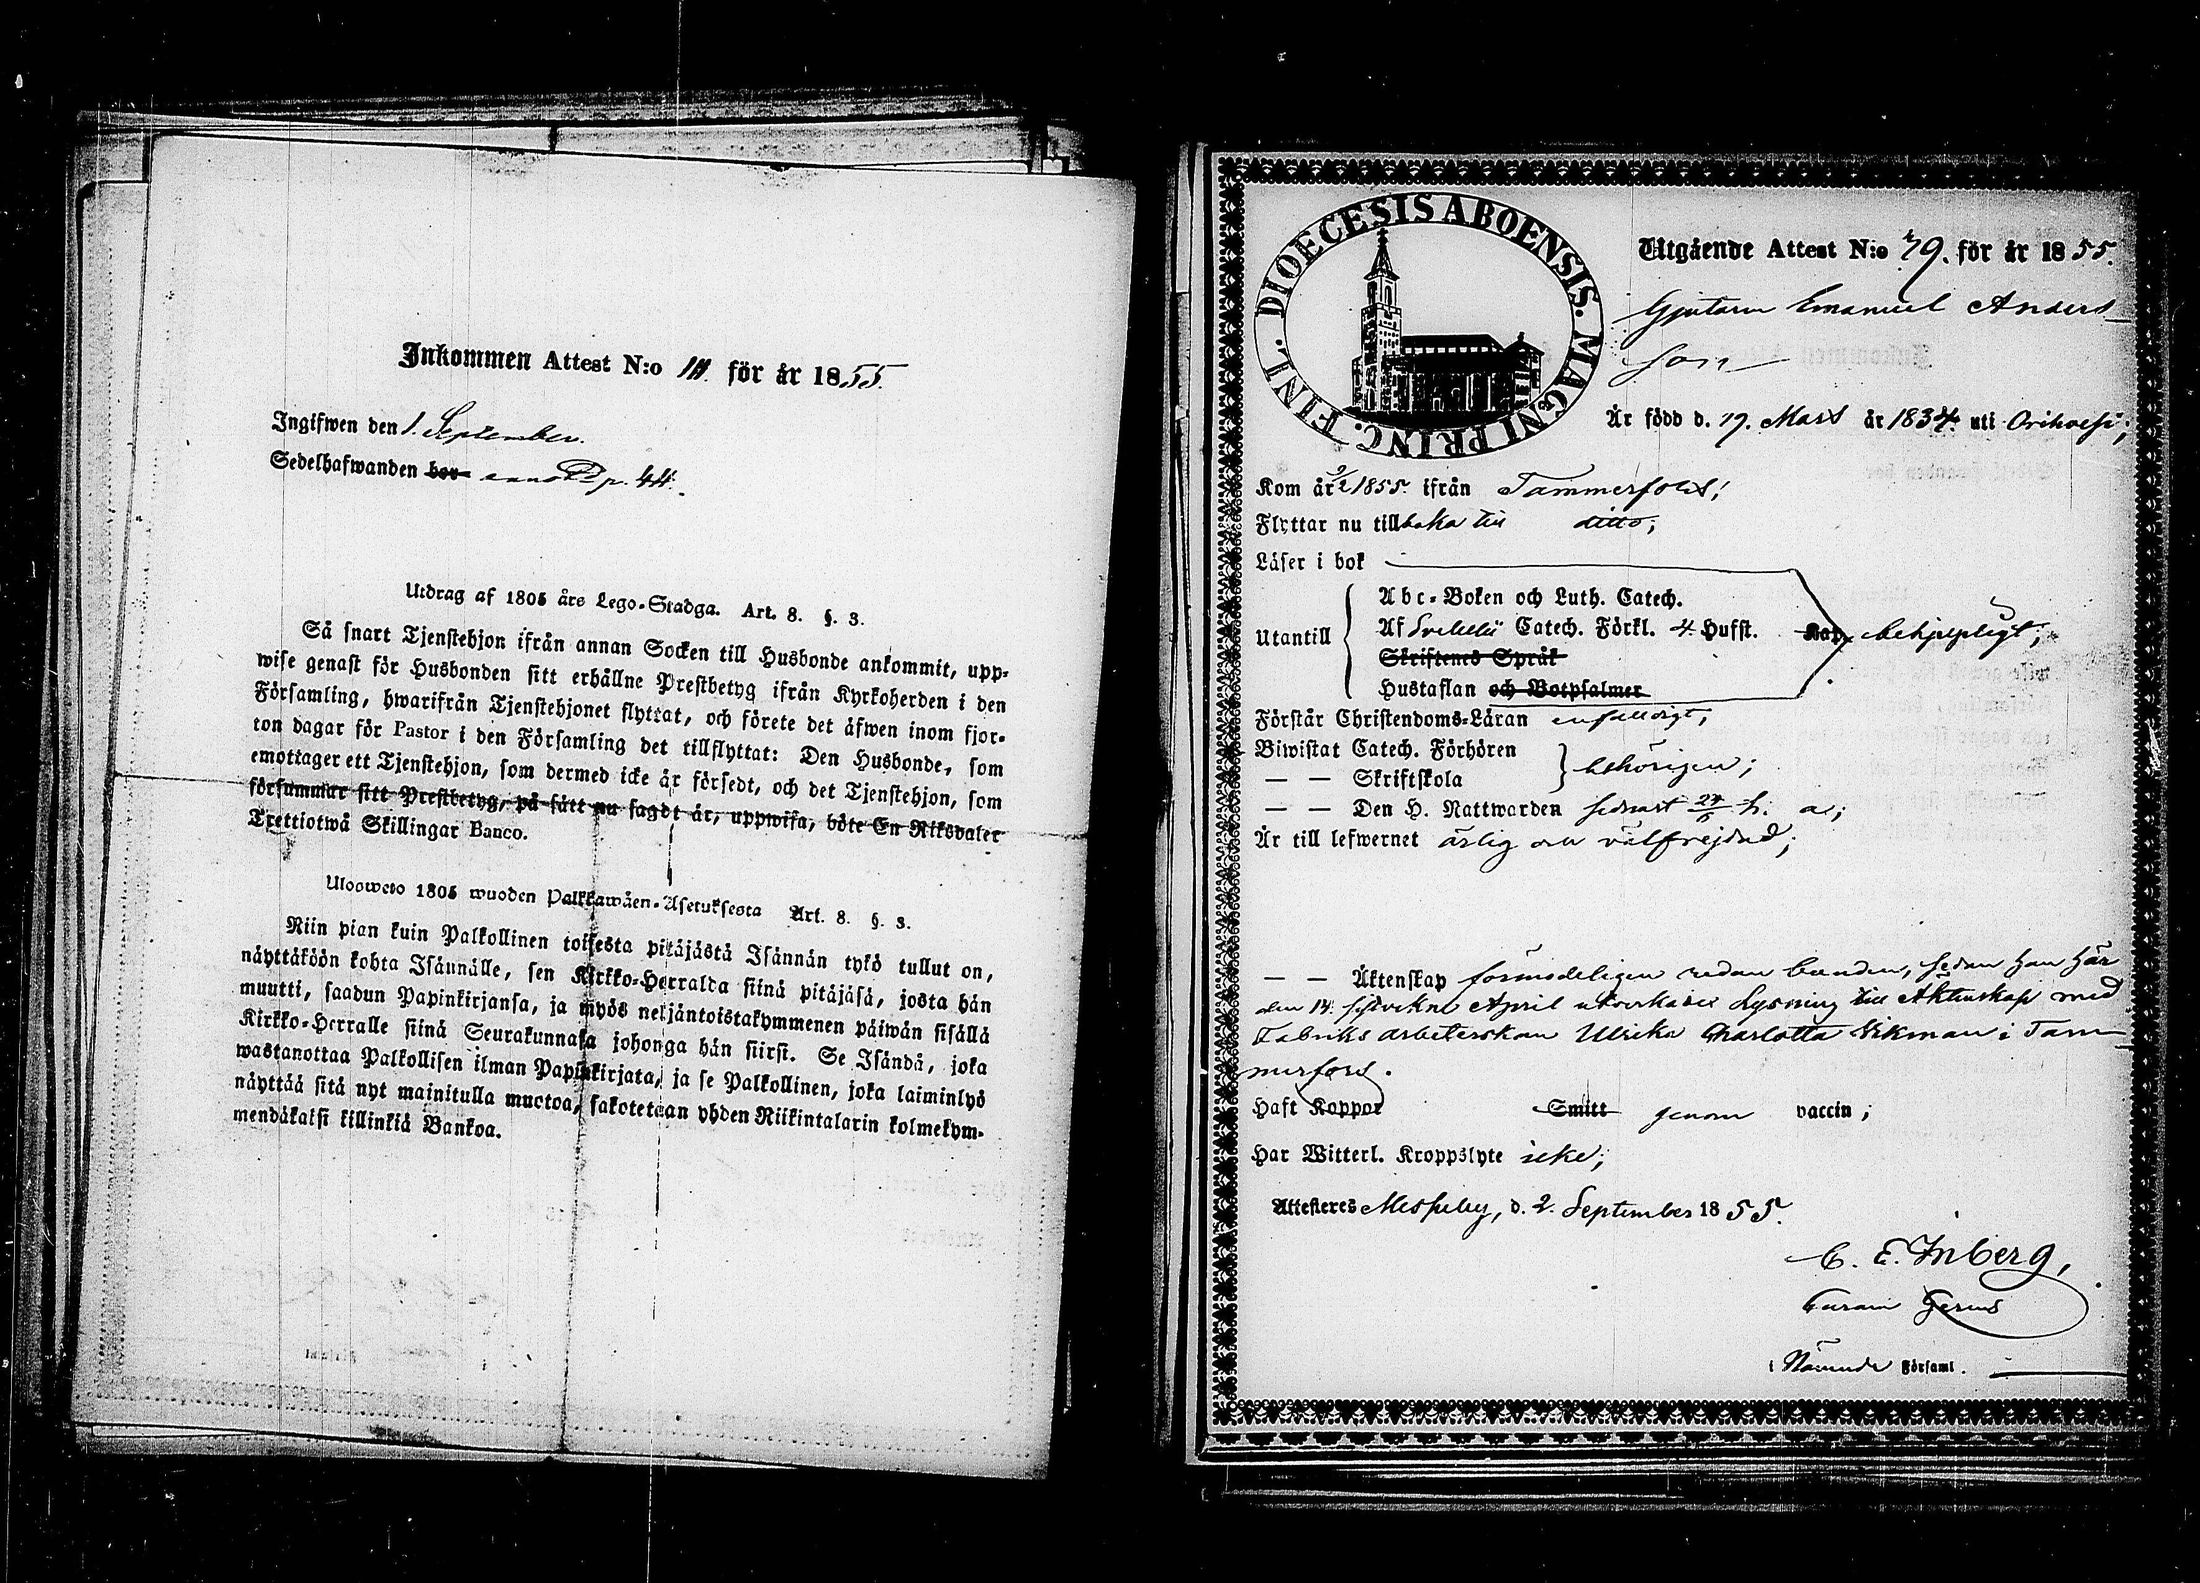 Inkommen Attest N:o 111. för år 1855.
Ingifwen den 1. September.
Sedelhafwanden bor annot p. 44.
Utdrag af 1805 års Lego-Stadga. Art. 8. §. 3.
Så snart Tjenstehjon ifrån annan Socken till Husbonde ankommit, upp-
wise genast för Husbonden sitt erhållne Prestbetyg ifrån Kyrkoherden i den
Församling, hwarifrån Tjenstehjonet flyttat, och förete det äfwen inom fjor-
ton dagar för Pastor i den Församling det tillflyttat: Den Husbonde, som
emottager ett Tjenstehjon, som dermed icke är försedt, och det Tjenstehjon, som
försummar sitt Prestbetyg, på sätt nu sagdt är, uppwisa, böte En Riksdaler
Trettiotwå Skillingar Banco.
Ulosweto 1805 wuoden Palkkawäen-Asetuksesta Art. 8. §. 3.
Niin pian kuin Palkollinen toisesta pitäjästä Isännän tykö tullut on,
näyttäköön kohta Isännälle, sen Kirkko-Herralda siinä pitäjäsä, josta hän
muutti, saadun Papinkirjansa, ja myös neljäntoistakymmenen päiwän sisällä
Kirkko-Herralle siinä Seurakunnasa johonga hän siirsi. Se Isändä, joka
wastanottaa Palkollisen ilman Papinkirjata, ja se Palkollinen, joka laiminlyö
näyttää sitä nyt mainitulla muotoa, sakotetaan yhden Riikintalarin kolmekym-
mendäkaksi killinkiä Bankoa.
DIOECESIS ABOENSIS. MAGNI PRINC. FINL.
Utgående Attest N:o 79. för år 1855.
Gjutaren Emanuel Anders
son
Är född d. 19. Mars år 1834 uti Orihvesi;
Kom år 1855. ifrån Tammerfors;
Flyttar nu tillbaka till ditto;
Läser i bok
Abc-Boken och Luth. Catech.
Utantill Af Svebelii Catech. Förkl. 4. Hufst. Kap. behjelpligt;
Skriftenes Språk
Hustaflan och Botpsalmer
Förstår Christendoms-Läran enfaldigt;
Biwistat Catech. Förhören
— — Skriftskola behörigen;
— — Den H. Nattwarden senast h. a;
Är till lefwernet ärlig och välfrejdad;
— — Äktenskap förmodeligen redan bunden, sedan han här
den 14. sistvekne April utverkade Lysning till Aktenskap med
Fabriks arbeterskan Ulrika Charlotta Wikman i Tam
merfors.
Haft Koppor Smitt genom vaccin;
Har Witterl. Kroppslyte icke;
Attesteres Messuby, d. 2. September 1855.
C. E. Inberg,
i Nämnde Församl.